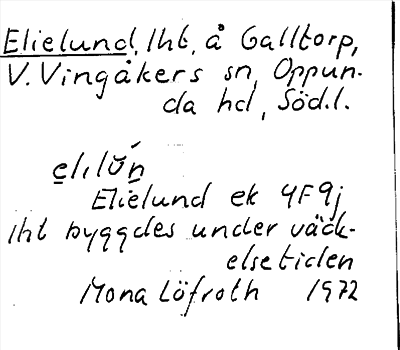 Elielund, lht, å Galltorp,
V. Vingåkers sn, Oppun-
da hd, Södl.
Elielund ek 9F9j
lht byggdes under väck-
elsetiden
Mona Löfroth 1972